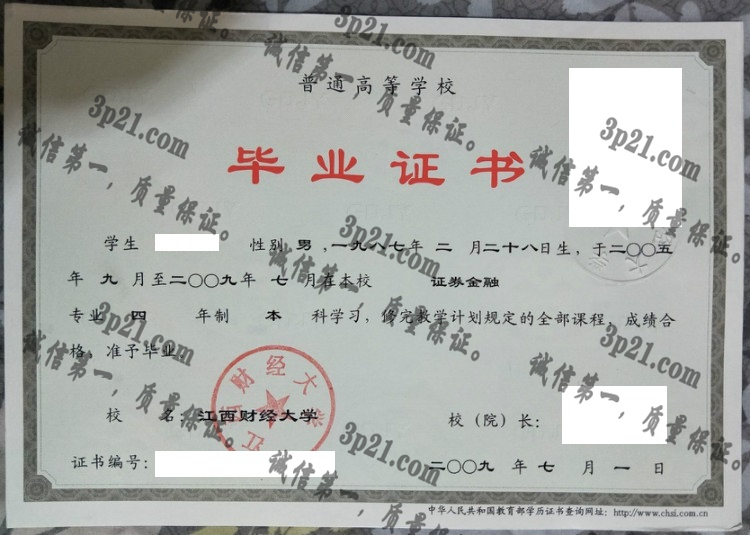 普通高等学校
毕业证书
学生 性别 男 ,一九八七年 二 月二十八日生，于二〇〇五
年 九 月至二〇〇九年 七 月在本校 证券金融
专业 四 年制 本 科学习，修完教学计划规定的全部课程，成绩合
格，准予毕业
校 名：江西财经大学
校（院）长：
证书编号：
二〇〇九 年 七 月 一 日
中华人民共和国教育部学历证书查询网址：http://www.chsi.com.cn
江西财经大学
3p21.com
诚信第一，质量保证。
3p21.com
诚信第一，质量保证。
3p21.com
诚信第一，质量保证。
3p21.com
诚信第一，质量保证。
3p21.com
诚信第一，质量保证。
3p21.com
诚信第一，质量保证。
3p21.com
诚信第一，质量保证。